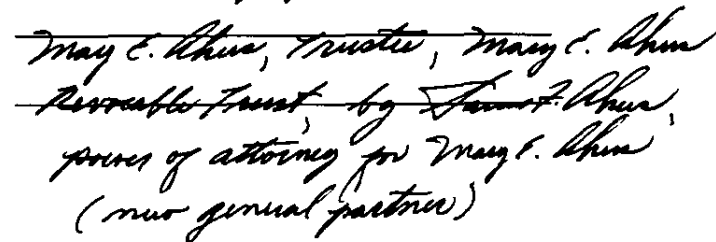 Mary E. Ahern, Trustee, Mary E. Ahern
Revocable Trust, by F. Ahern,
power of attorney for Mary E. Ahern
(new general partner)